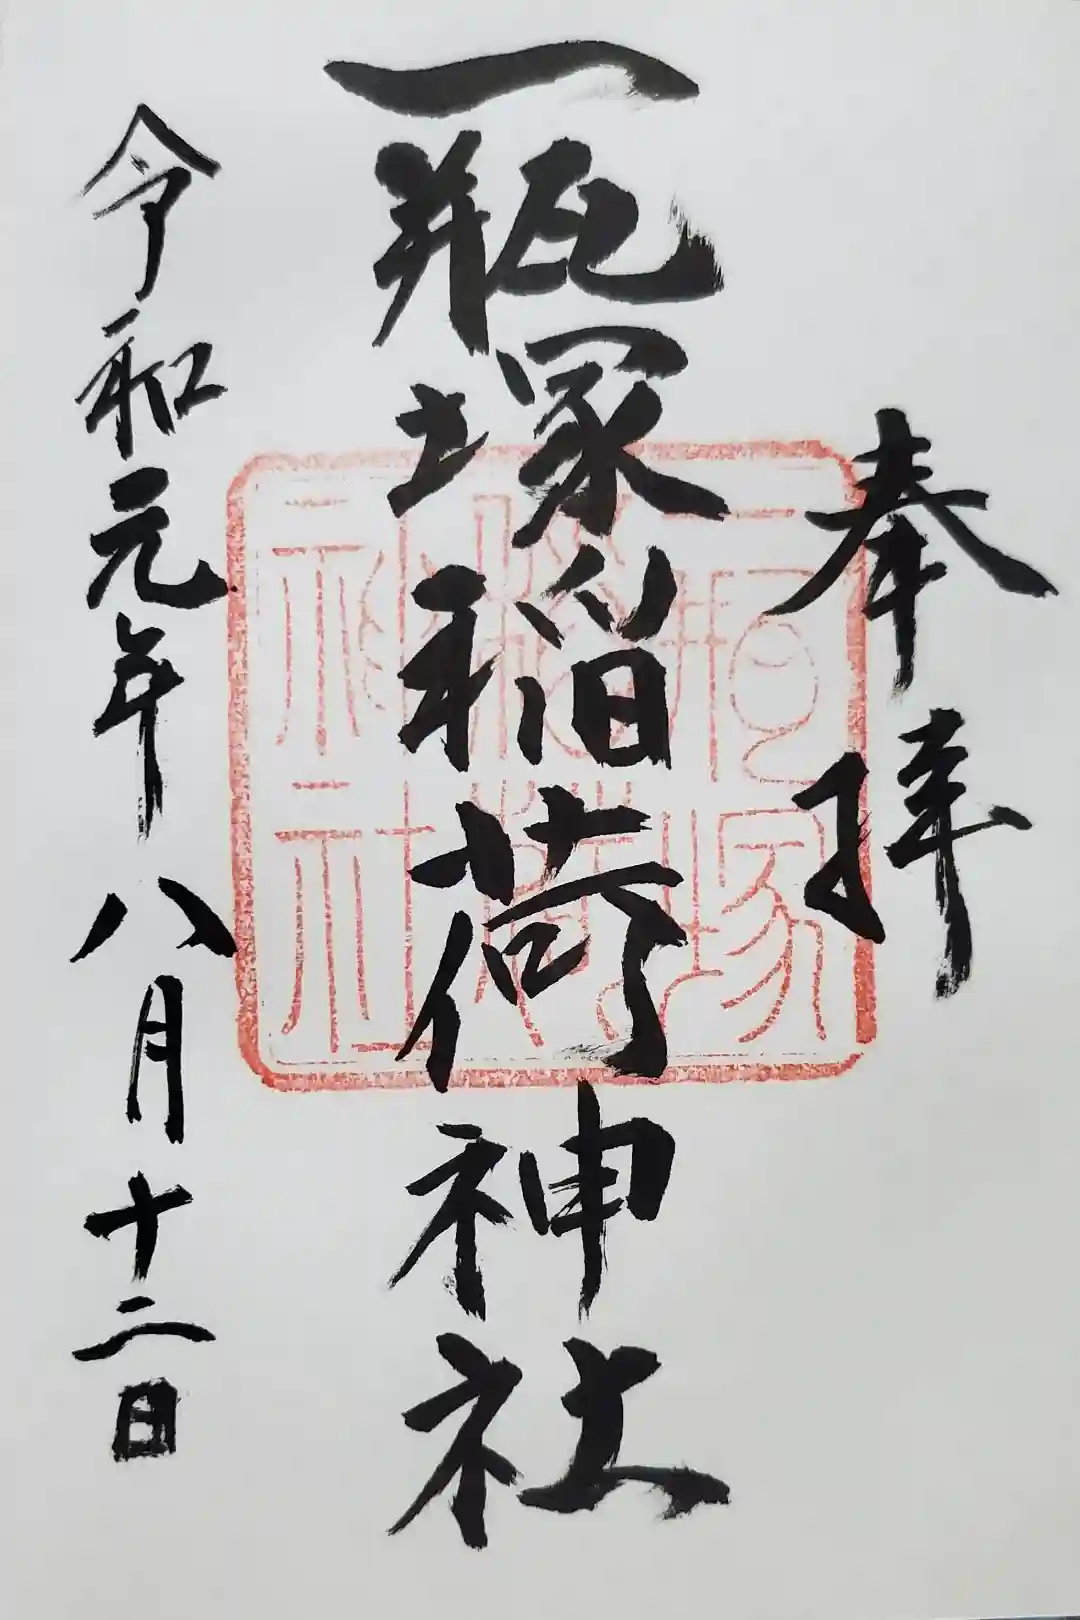 奉拝
一瓶塚稲荷神社
一瓶塚
稲荷
神社
令和元年八月十二日